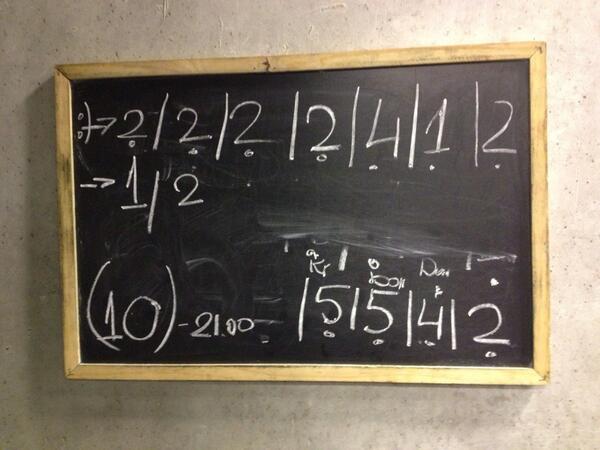 :)→ 2 | 2 | 2 | 2 | 4 | 1 | 2
→ 1 / 2
(10) - 21.00 | 5 | 5 | 4 | 2